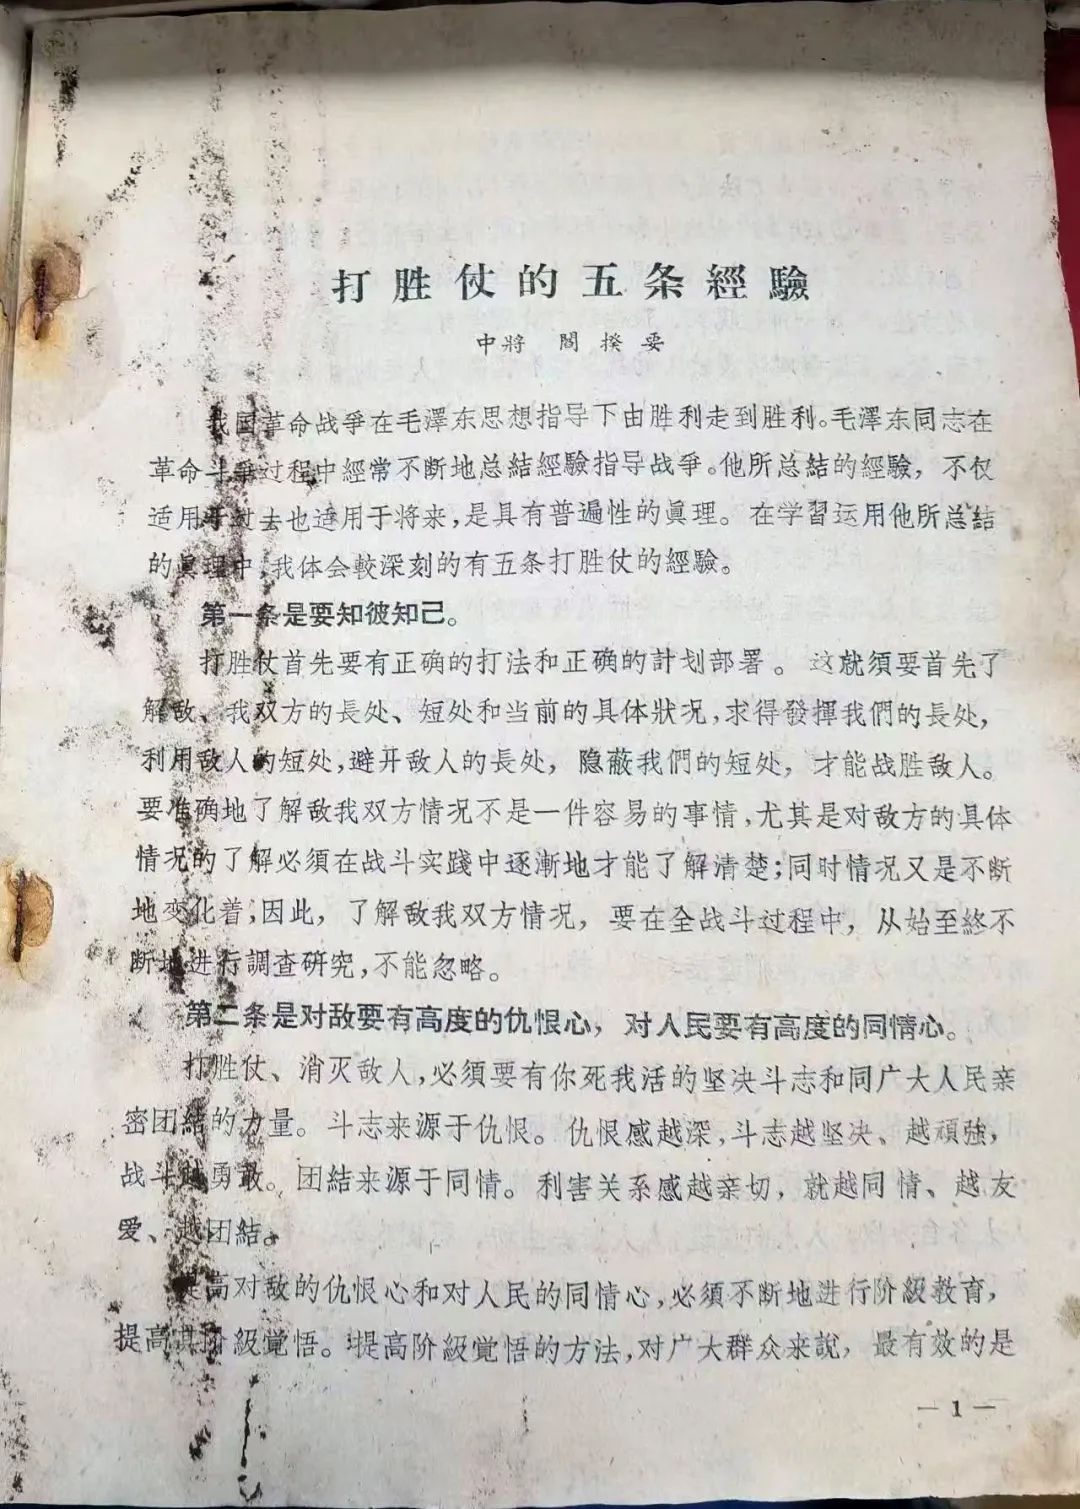 打胜仗的五条經驗
中將 閻揆要
我国革命战爭在毛澤东思想指导下由胜利走到胜利。毛澤东同志在
革命斗爭过程中經常不断地总結經驗指导战爭。他所总結的經驗，不仅
适用于过去也适用于将来，是具有普遍性的眞理。在学習运用他所总結
的眞理中，我体会較深刻的有五条打胜仗的經驗。
第一条是要知彼知己。
打胜仗首先要有正确的打法和正确的計划部署。这就須要首先了
解敌、我双方的長处、短处和当前的具体狀况，求得發揮我們的長处，
利用敌人的短处，避开敌人的長处，隐蔽我們的短处，才能战胜敌人。
要准确地了解敌我双方情况不是一件容易的事情，尤其是对敌方的具体
情况的了解必須在战斗实践中逐漸地才能了解清楚；同时情况又是不断
地变化着；因此，了解敌我双方情况，要在全战斗过程中，从始至終不
断地进行調查研究，不能忽略。
第二条是对敌要有高度的仇恨心，对人民要有高度的同情心。
打胜仗、消灭敌人，必須要有你死我活的坚决斗志和同广大人民亲
密团結的力量。斗志来源于仇恨。仇恨感越深，斗志越坚决、越頑強，
战斗越勇敢。团結来源于同情。利害关系感越亲切，就越同情、越友
爱、越团結。
提高对敌的仇恨心和对人民的同情心，必須不断地进行阶級教育，
提高其阶級覚悟。提高阶級覚悟的方法，对广大群众来說，最有效的是
— 1 —